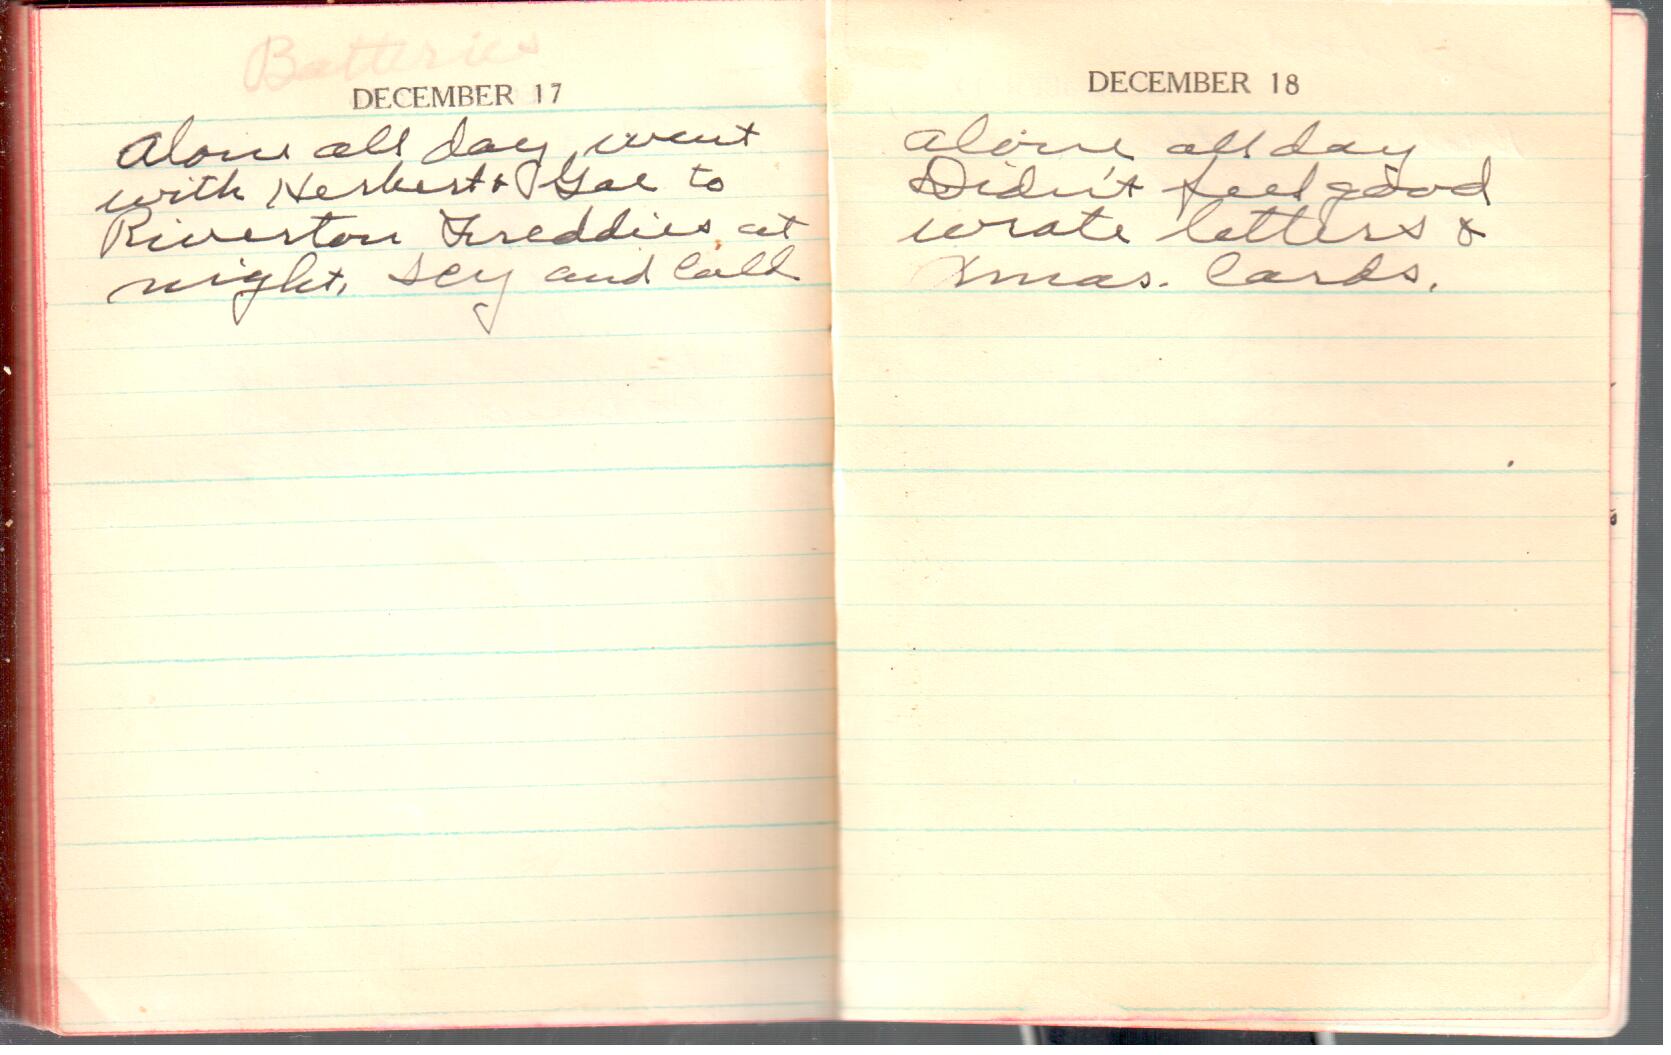 Batteries
DECEMBER 17
Alone all day went
with Herbert & Gae to
Riverton Freddies at
night, icy and Cold
DECEMBER 18
Alone all day
Didn't feel good
wrote letters &
Xmas. Cards.